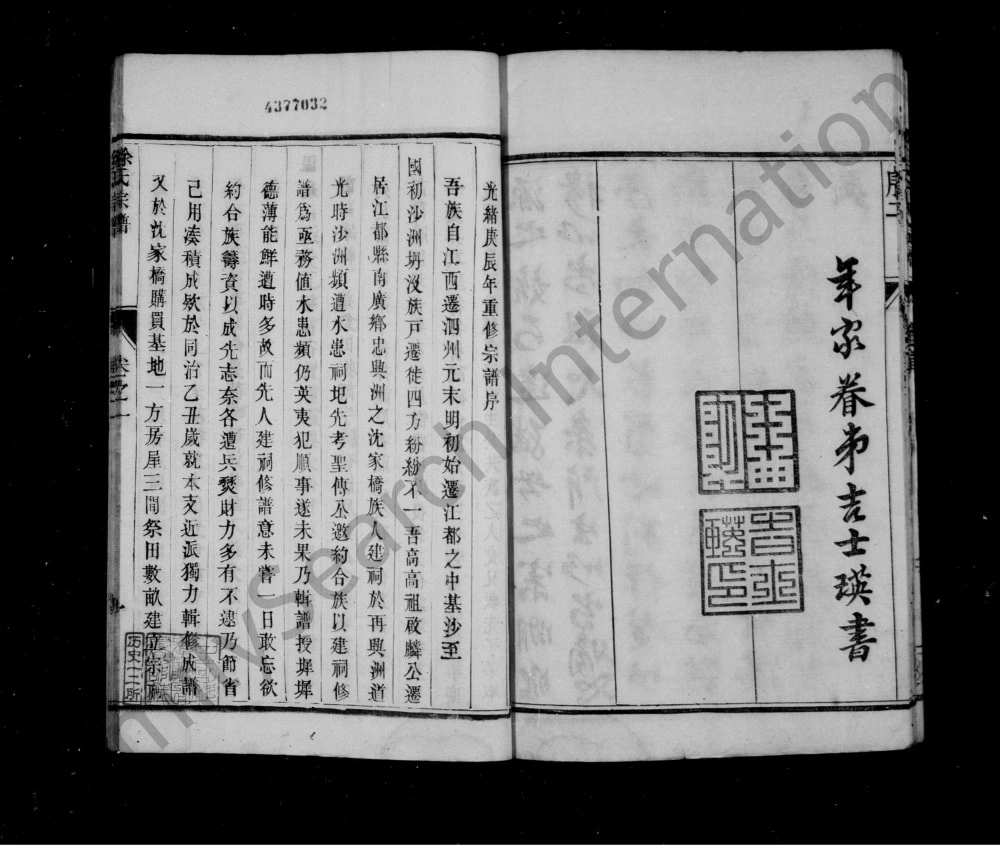 序二
年家眷弟吉士瑛書
4377032
光緒庚辰年重修宗譜序
吾族自江西遷泗州元末明初始遷江都之中基沙至
國初沙洲坍沒族戶遷徙四方紛紛不一吾高高祖啟麟公遷
居江都縣南廣鄉忠興洲之沈家橋族人建祠於再興洲道
光時沙洲頻遭水患祠圯先考聖傳公邀約合族以建祠修
譜爲亟務值水患頻仍英夷犯順事遂未果乃輯譜授墀墀
德薄能鮮遭時多故而先人建祠修譜意未嘗一日敢忘欲
約合族籌資以成先志奈各遭兵燹財力多有不逮乃節省
己用湊積成欵於同治乙丑歲就本支近派獨力輯修成譜
又於沈家橋購買基地一方房屋三間祭田數畝建立宗祠
徐氏宗譜
卷之一
九
历史一二所
FamilySearch International